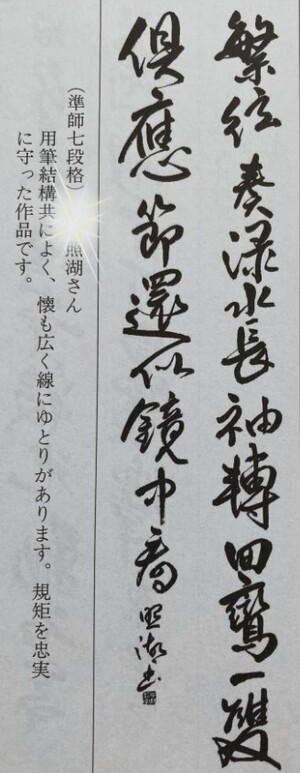 繁絃奏淥水長袖轉回鸞一雙
俱應節還似鏡中看 照湖書
（準師七段格）照湖さん
用筆結構共によく、懐も広く線にゆとりがあります。規矩を忠実
に守った作品です。